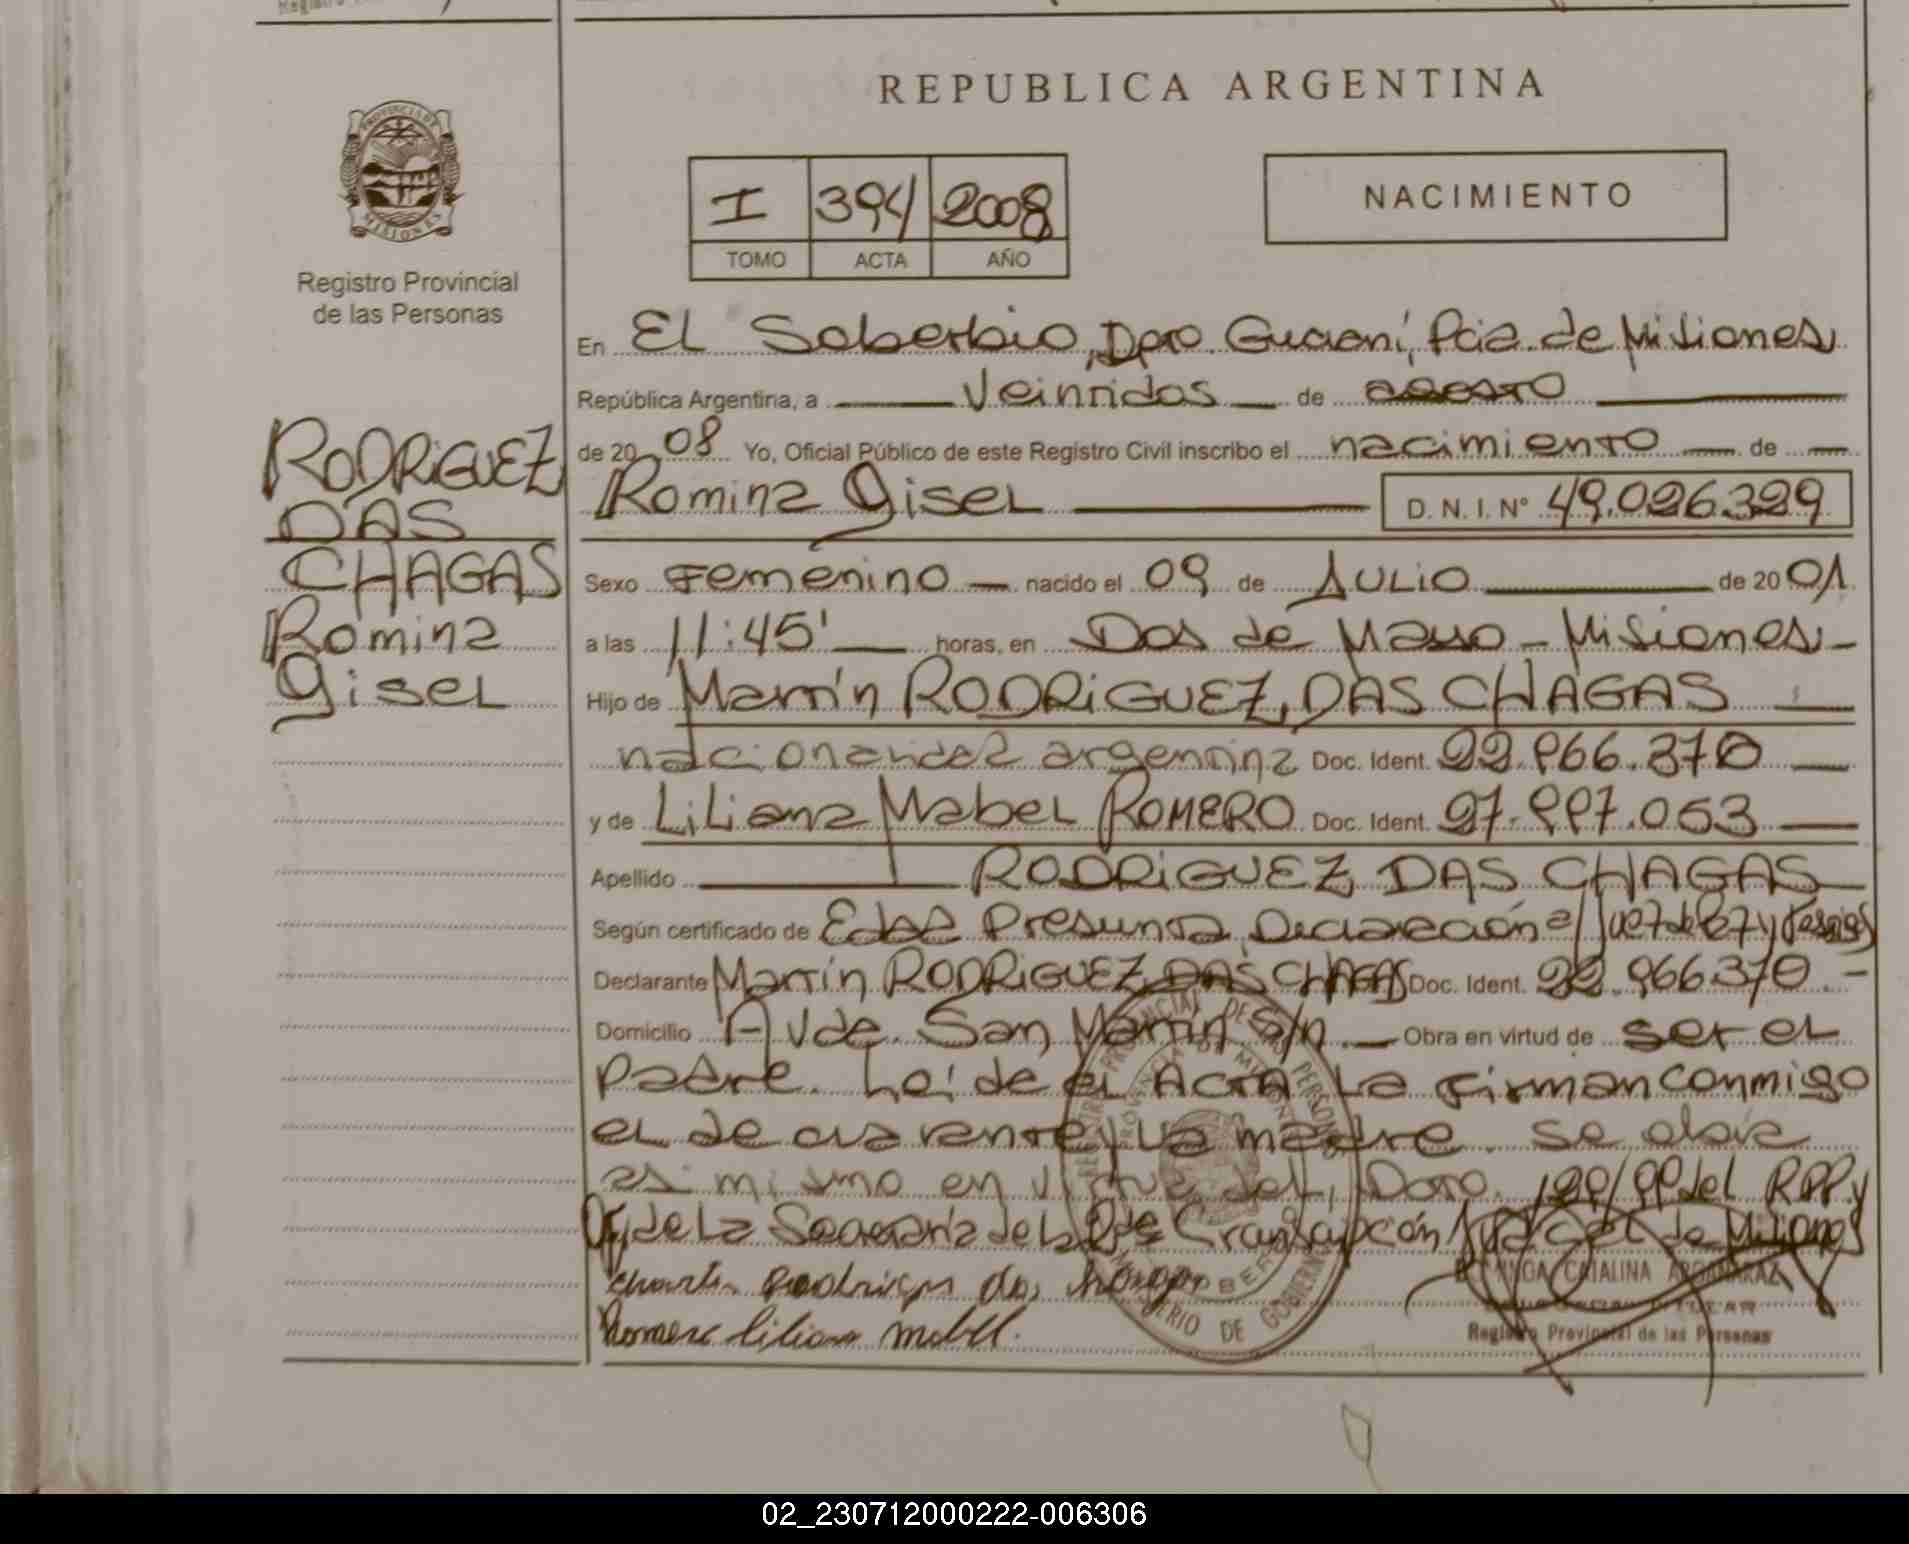 REPUBLICA ARGENTINA
PROVINCIA DE
MISIONES
Registro Provincial
de las Personas
I 394 2008
TOMO ACTA AÑO
NACIMIENTO
RODRIGUEZ
DAS
CHAGAS
Romina
Gisel
En El Soberbio, Dpto. Guaraní, Pcia. de Misiones
República Argentina, a Veintidos de agosto
de 2008 Yo, Oficial Público de este Registro Civil inscribo el nacimiento de
Romina Gisel D. N. I. Nº 49.026.329
Sexo Femenino nacido el 09 de JULIO de 2001
a las 11:45' horas, en Dos de Mayo - Misiones -
Hijo de Martín RODRIGUEZ DAS CHAGAS
nacionalidad argentina Doc. Ident. 22.966.370
y de Liliana Mabel ROMERO Doc. Ident. 27.997.053
Apellido RODRIGUEZ DAS CHAGAS
Según certificado de Edad Presunta, Declaración a/ Juez de Paz y Testigos
Declarante Martín RODRIGUEZ DAS CHAGAS Doc. Ident. 22.966.370 -
Domicilio Avda. San Martín s/n. Obra en virtud de ser el
padre. Leí de el Acta La firman conmigo
el declarante y la madre. Se obra
asi mismo en virtud del Dcto. 120/99 del RPP. y
de la Secretaría de la de
Rodrigues das
Romero liliana mabel.
CATALINA
Registro Provincial de las Personas
MINISTERIO DE GOBIERNO
02_230712000222-006306